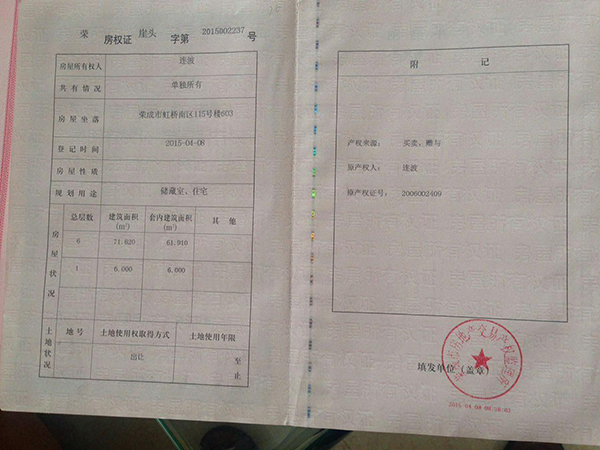 荣 房权证 崖头 字第 2015002237 号
房屋所有权人 连波
共有情况 单独所有
房屋坐落 荣成市虹桥南区115号楼603
登记时间 2015-04-08
房屋性质
规划用途 储藏室、住宅
房屋状况
总层数 建筑面积(m²) 套内建筑面积(m²) 其他
6 71.620 61.910
1 6.000 6.000
土地状况
地号 土地使用权取得方式 土地使用年限
出让 至
止
附记
产权来源: 买卖, 赠与
原产权人: 连波
原产权证号: 2006002409
填发单位(盖章)